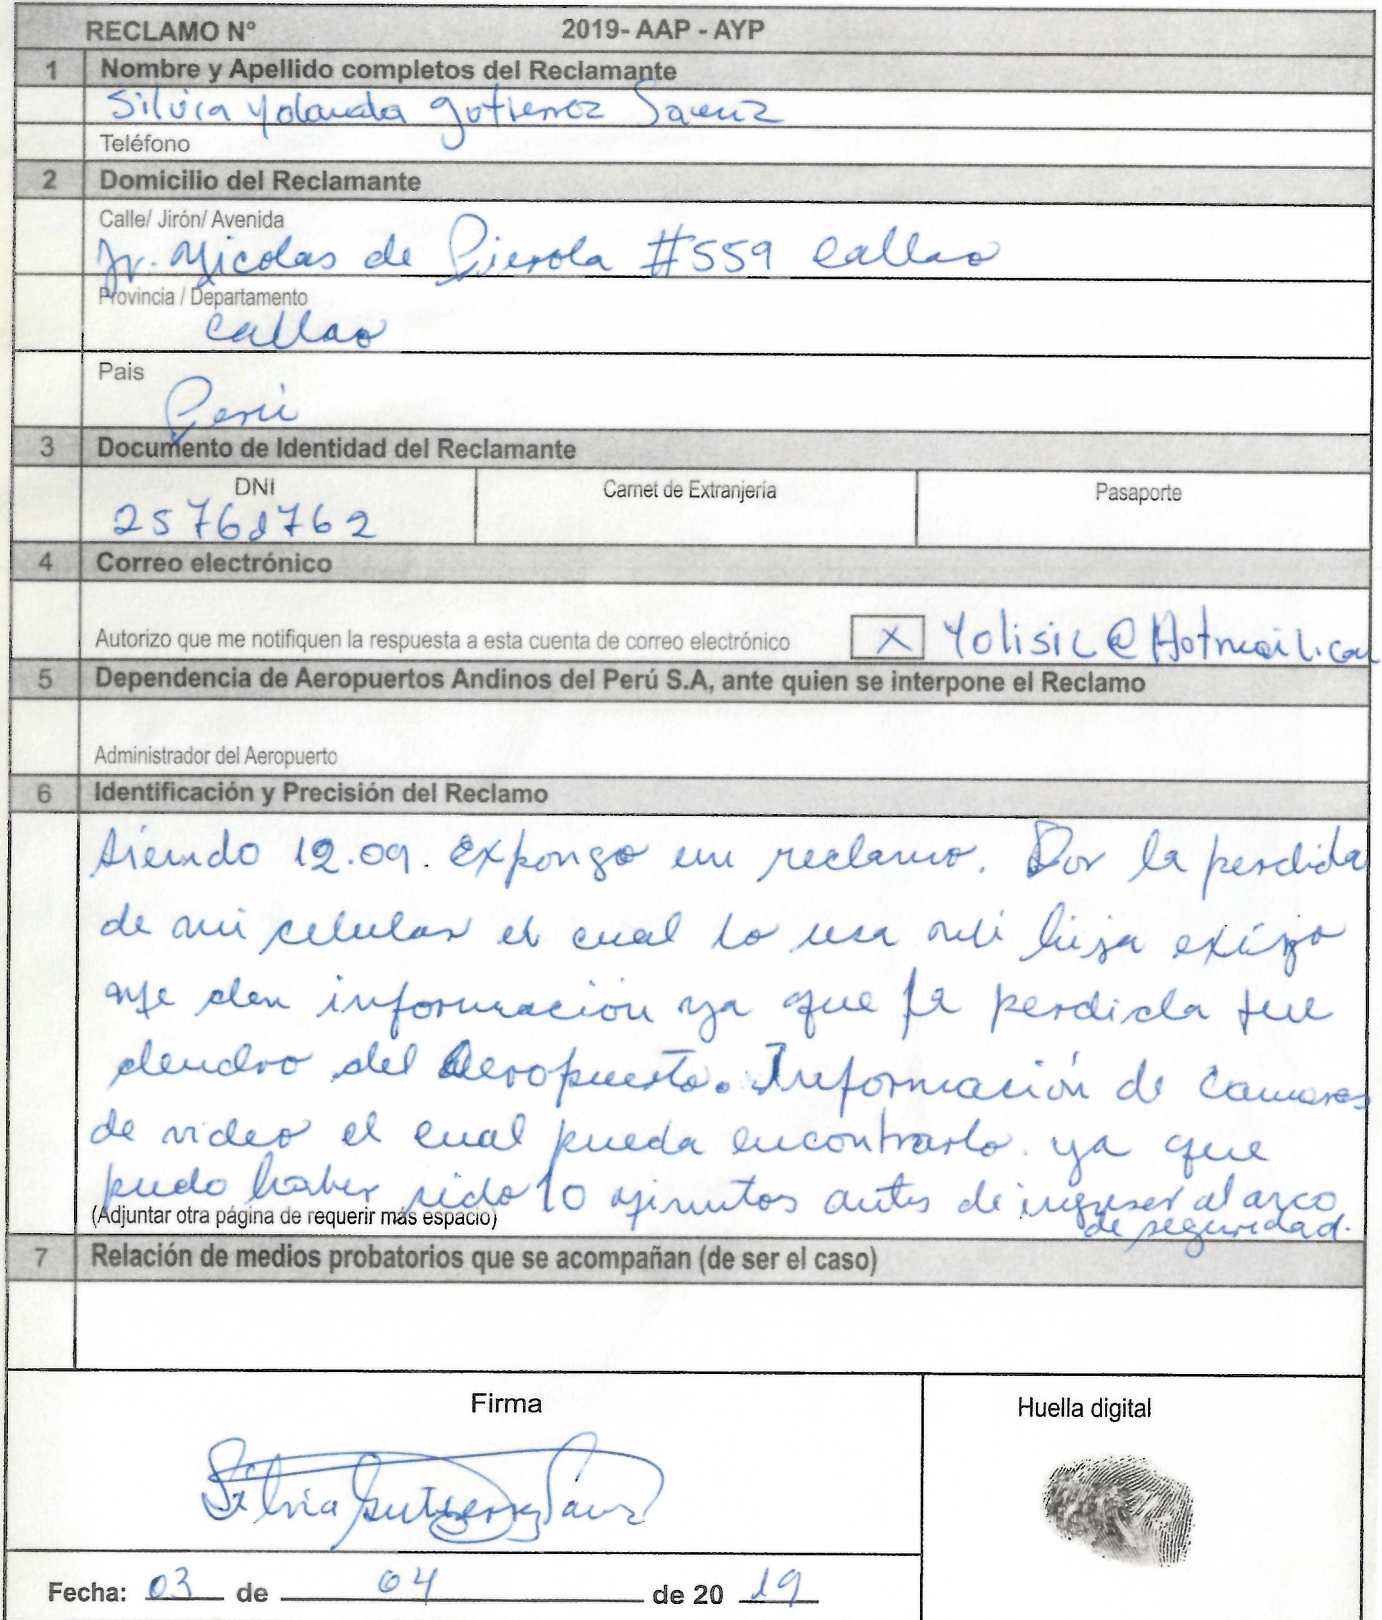 RECLAMO N° 2019- AAP - AYP
1 Nombre y Apellido completos del Reclamante
Silvia Yolanda Gutierrez Saenz
Teléfono
2 Domicilio del Reclamante
Calle/ Jirón/ Avenida
Jr. Nicolas de Pierola #559 Callao
Provincia / Departamento
Callao
Pais
Perú
3 Documento de Identidad del Reclamante
DNI Carnet de Extranjería Pasaporte
4 Correo electrónico
Autorizo que me notifiquen la respuesta a esta cuenta de correo electrónico X Yolisil@Hotmail.com
5 Dependencia de Aeropuertos Andinos del Perú S.A, ante quien se interpone el Reclamo
Administrador del Aeropuerto
6 Identificación y Precisión del Reclamo
siendo 12.09. Expongo mi reclamo. Por la perdida
de mi celular el cual lo usa mi hija exijo
me den información ya que la perdida fue
dentro del Aeropuerto. Información de Camaras
de video el cual pueda encontrarlo. ya que
pudo haber sido 10 minutos antes de ingresar al arco
de seguridad.
(Adjuntar otra página de requerir más espacio)
7 Relación de medios probatorios que se acompañan (de ser el caso)
Firma Huella digital
Silvia Gutierrez Saenz
Fecha: 03 de 04 de 20 19